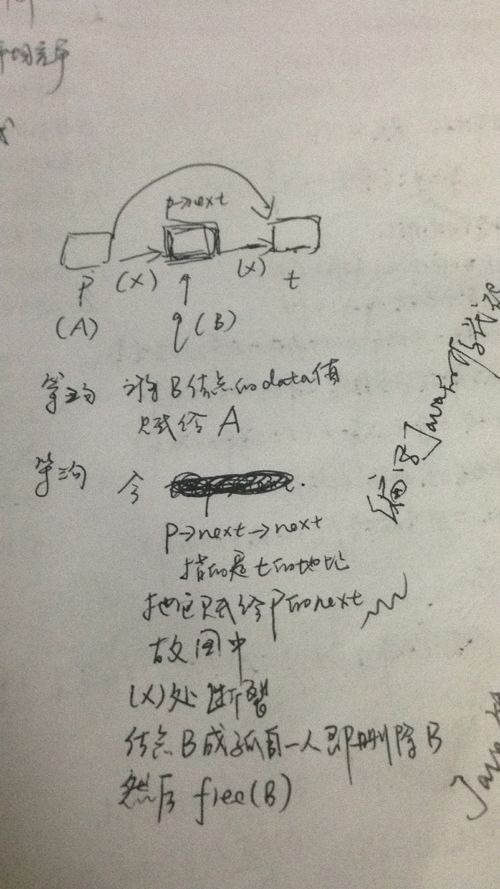 p→next
(X) (X)
p q t
(A) (B)
第2句 将B结点的data值
赋给A
第3句 令
p→next→next
指的是t的地址
把它赋给p的next
故图中
(X)处断裂
结点B成孤自一人即删除B
然后 free(B)
Java
Java